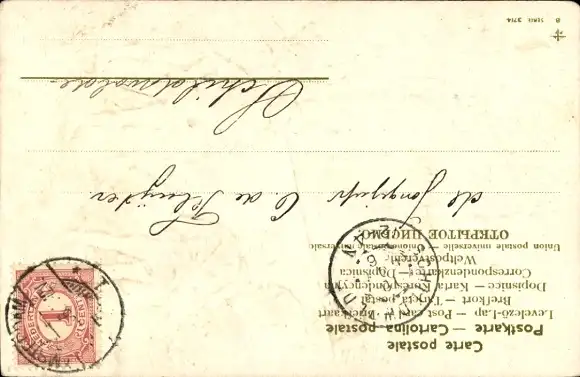 Carte postale
Postkarte — Cartolina postale
Levelező-Lap — Post card — Briefkaart
Brefkort — Tarjeta postal
Dopisnice — Karta Korespondencyjna
Correspondenzkarte — Dopisnica
Weltpostverein
Union postale universelle — Unione postale universale
ОТКРЫТОЕ ПИСЬМО.
1
de Jongejufr C. de Kluijver
Schildwolde
B SERIE 3714